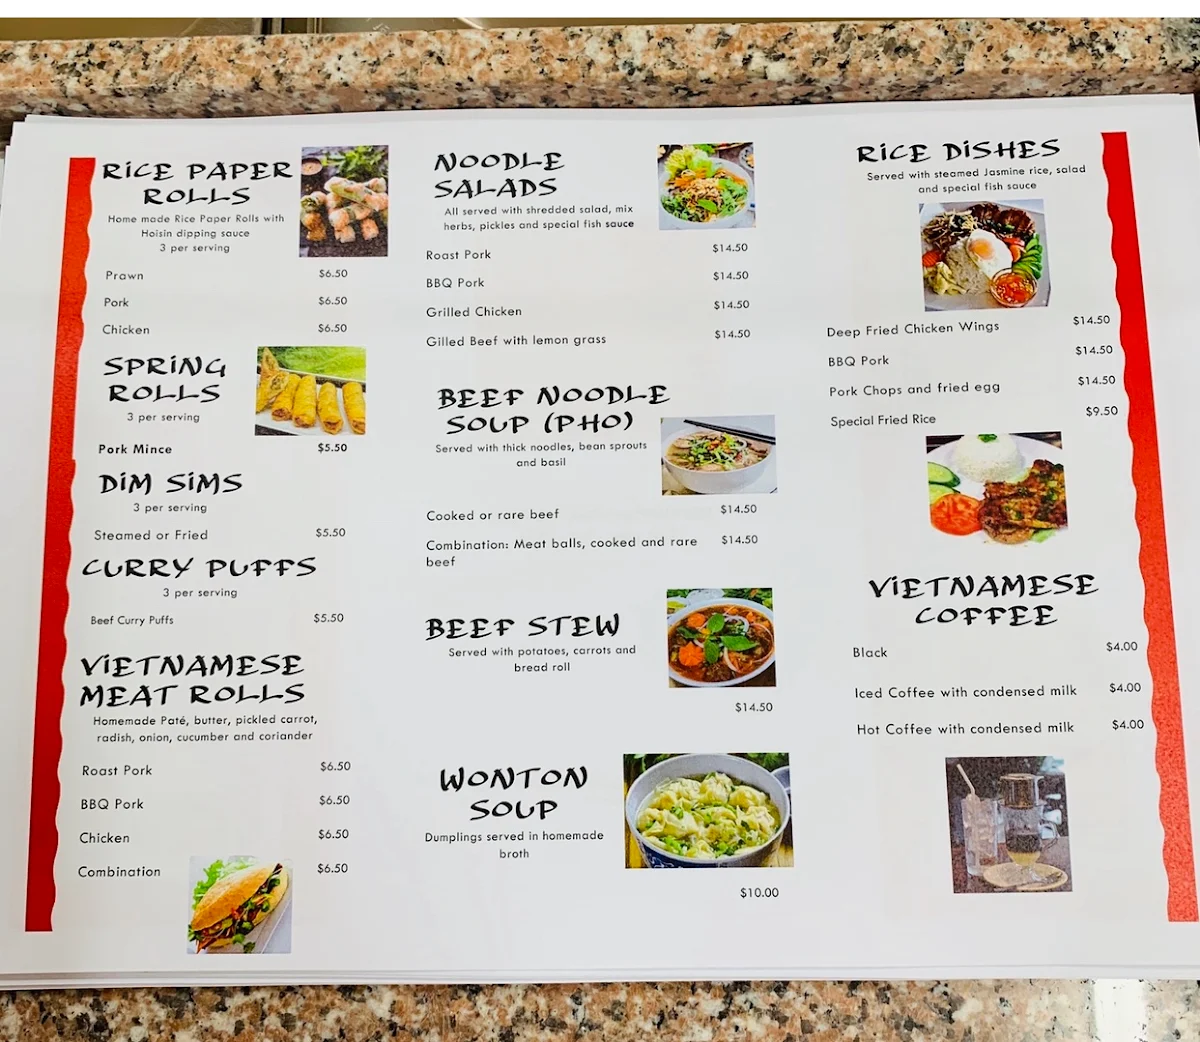 RICE PAPER
ROLLS
Home made Rice Paper Rolls with
Hoisin dipping sauce
3 per serving
Prawn $6.50
Pork $6.50
Chicken $6.50
SPRING
ROLLS
3 per serving
Pork Mince $5.50
DIM SIMS
3 per serving
Steamed or Fried $5.50
CURRY PUFFS
3 per serving
Beef Curry Puffs $5.50
VIETNAMESE
MEAT ROLLS
Homemade Paté, butter, pickled carrot,
radish, onion, cucumber and coriander
Roast Pork $6.50
BBQ Pork $6.50
Chicken $6.50
Combination $6.50
NOODLE
SALADS
All served with shredded salad, mix
herbs, pickles and special fish sauce
Roast Pork $14.50
BBQ Pork $14.50
Grilled Chicken $14.50
Gilled Beef with lemon grass $14.50
BEEF NOODLE
SOUP (PHO)
Served with thick noodles, bean sprouts
and basil
Cooked or rare beef $14.50
Combination: Meat balls, cooked and rare $14.50
beef
BEEF STEW
Served with potatoes, carrots and
bread roll
$14.50
WONTON
SOUP
Dumplings served in homemade
broth
$10.00
RICE DISHES
Served with steamed Jasmine rice, salad
and special fish sauce
Deep Fried Chicken Wings $14.50
BBQ Pork $14.50
Pork Chops and fried egg $14.50
Special Fried Rice $9.50
VIETNAMESE
COFFEE
Black $4.00
Iced Coffee with condensed milk $4.00
Hot Coffee with condensed milk $4.00